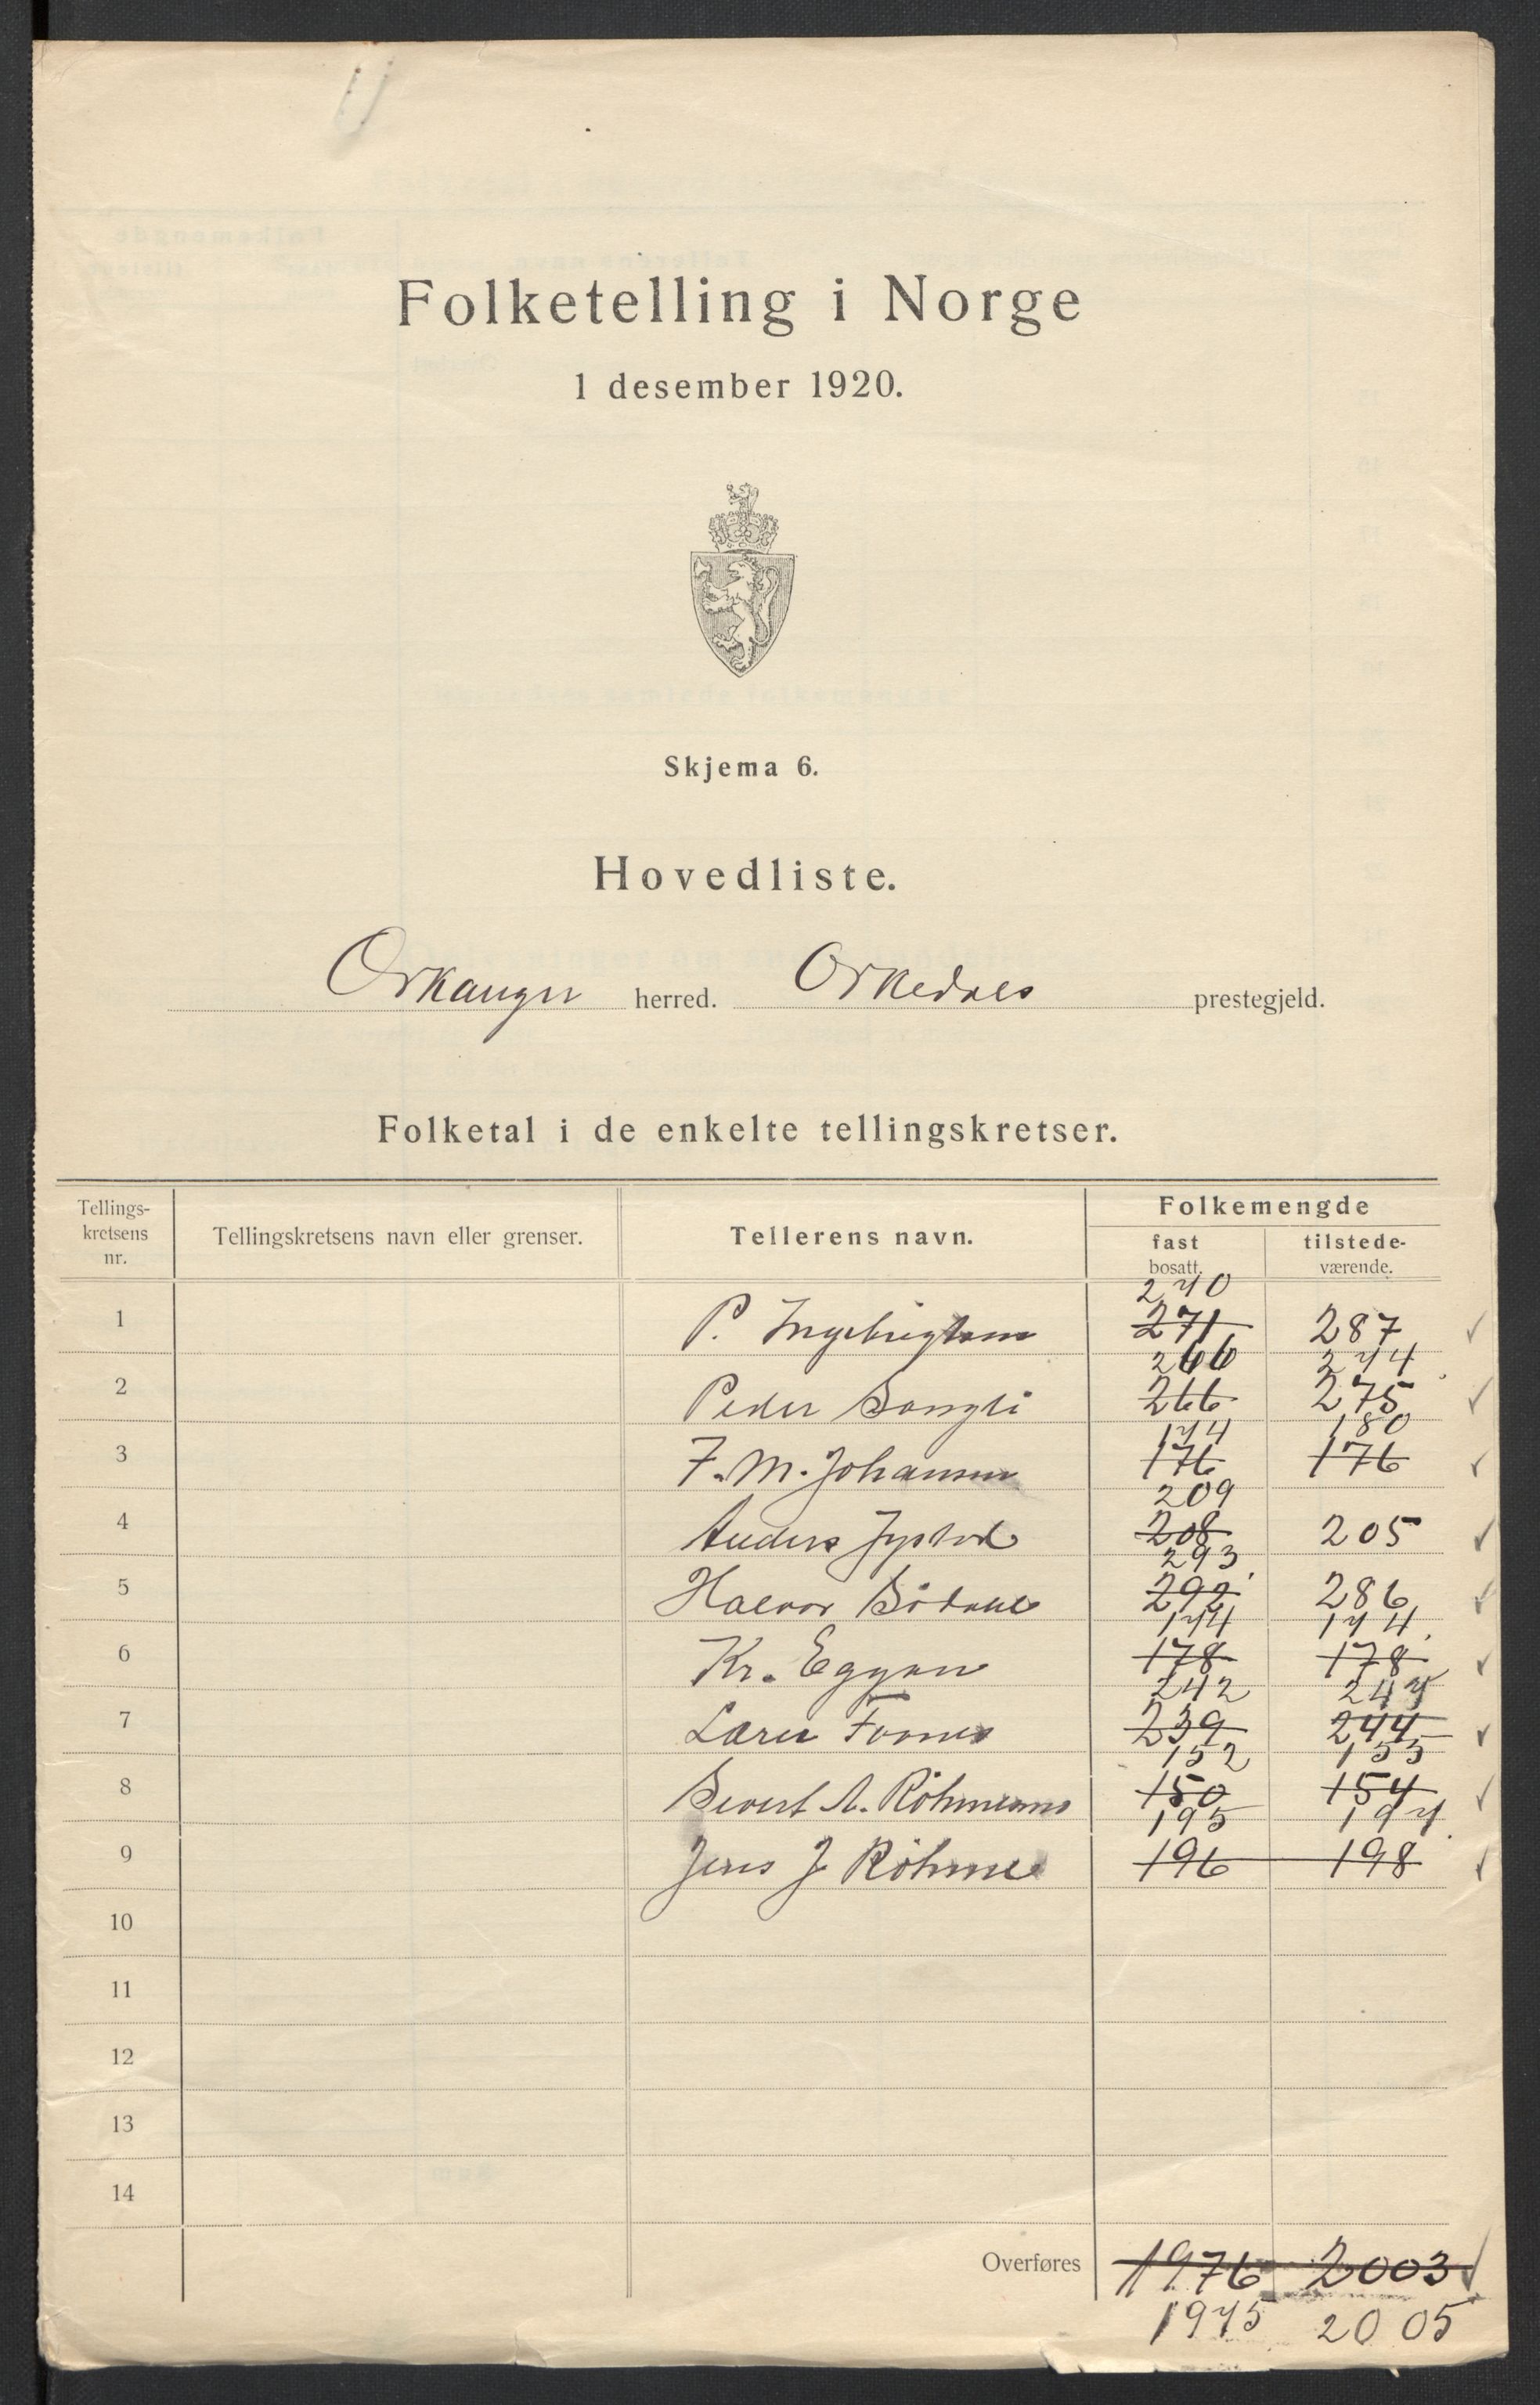 Folketelling i Norge
1 desember 1920.
Skjema 6.
Hovedliste.
Orkanger herred. Orkedals prestegjeld.
Folketal i de enkelte tellingskretser.
Tellings-kretsens nr. Tellingskretsens navn eller grenser. Tellerens navn. Folkemengde
fast bosatt. tilstede-værende.
270
1 P. Ingebrigtsen 271 287
266 274
2 Peder Songli 266 275
174 180
3 F. M. Johansen 176 176
209
4 Anders Jystad 208 205
293
5 Halvor Bödahl 292 286
174 174
6 Kr. Eggan 178 178
242 247
7 Lærer Fornes 239 244
152 155
8 Sivert A. Röhme 150 154
195 197
9 Jens J Röhme 196 198
10
11
12
13
14
Overføres 1976 2003
1975 2005